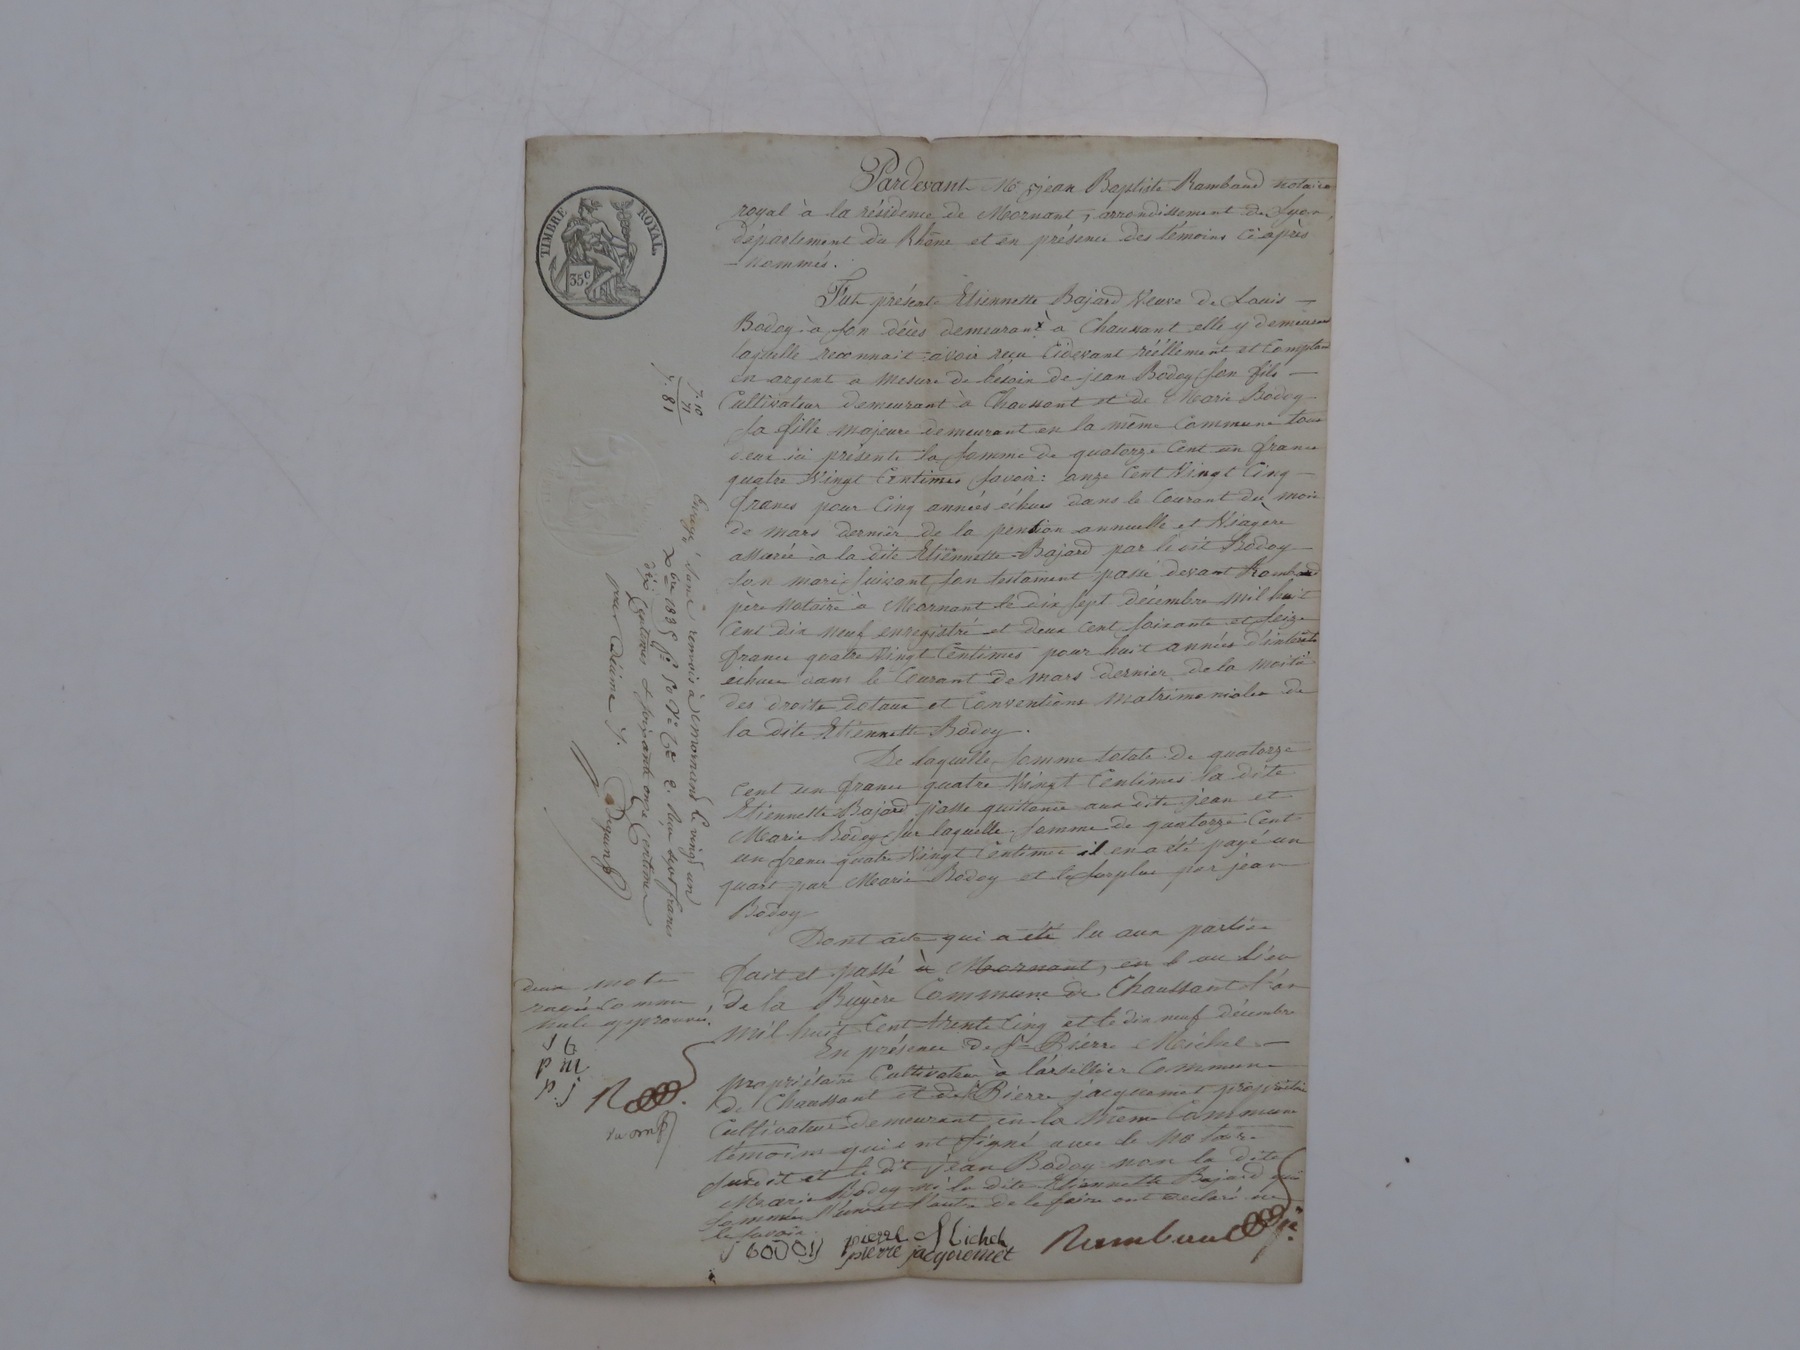 TIMBRE ROYAL
35c.
Pardevant Me jean Baptiste Rambaud notaire
royal à la résidence de Mornant, arrondissement de Lyon,
département du Rhône et en présence des témoins ci après
nommés.
Fut présente Etiennette Bajard Veuve de Louis
Bodoy à son décès demeurant à Chaussant elle y demeurant
laquelle reconnait avoir reçu cidevant réellement et comptant
en argent a mesure de besoin de jean Bodoy son fils
Cultivateur demeurant à Chaussant et de Marie Bodoy
sa fille majeure demeurant en la même Commune tous
deux ici présents la somme de quatorze cent un francs
quatre Vingt Centimes savoir: onze Cent Vingt Cinq
francs pour Cinq années échues dans le Courant du mois
de mars dernier de la pension annuelle et Viagère
assurée à la dite Etiennette Bajard par le dit Bodoy
son mari suivant son testament passé devant Rambaud
père Notaire à Mornant le dix sept décembre mil huit
Cent dix neuf enregistré et deux cent soixante et seize
francs quatre Vingt Centimes pour huit années d'intérêts
échues dans le Courant de mars dernier de la moitié
des droits dotaux et Conventions matrimoniales de
la dite Etiennette Bodoy.
De laquelle somme totale de quatorze
cent un francs quatre Vingt Centimes la dite
Etiennette Bajard passe quittance aux dits jean et
Marie Bodoy sur laquelle somme de quatorze Cent
un francs quatre Vingt Centimes il en a été payé un
quart par Marie Bodoy et le surplus par jean
Bodoy
Dont acte qui a été lu aux parties
fait et passé à Mornant, en b au lieu
de la Buyère Commune de Chaussant l'an
mil huit Cent trente Cinq et le dix neuf décembre
En présence de Sr Pierre Michel
propriétaire Cultivateur à Larsillier Commune
de Chaussant et de Pierre jacquemet propriétaire
Cultivateur demeurant en la même Commune
témoins qui ont signé avec le Notaire
susdit et le dit jean Bodoy non la dite
Marie Bodoy ni la dite Etiennette Bajard qui
sommées l'une et l'autre de le faire ont déclaré ne
le savoir.
J bodoy pierre Michel
pierre jacquemet
Rambaud
7.10
71
7.81
Enregistré à Mornand le vingt un
Xbre 1835 fo 50 Vo Ce 2. Reçu sept francs
dix Centimes & soixante onze Centimes
pour décime /.
deux mots
rayés Comme
nuls approuvés.
J b
p m
p. j
R